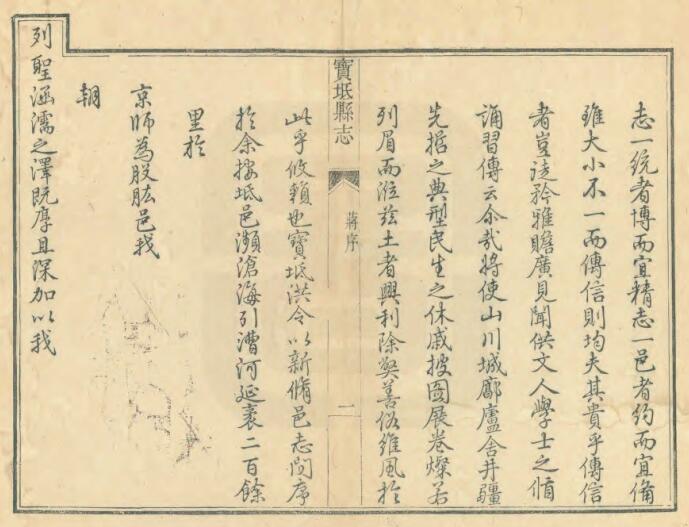 志一統者博而宜精志一邑者約而宜備
雖大小不一而傳信則均夫其貴乎傳信
者豈徒矜雅贍廣見聞供文人學士之
誦習傳云尒哉將使山川城廓廬舍井疆
先掿之典型民生之休戚披圖展卷燦若
列眉而涖茲土者興利除獘善俗維風於
寶坻縣志
蔣序
一
此乎攸賴也寶坻洪令以新脩邑志問序
於余按坻邑瀕滄海引漕河延袤二百餘
里於
京師為股肱邑我
朝
列聖涵濡之澤既厚且深加以我